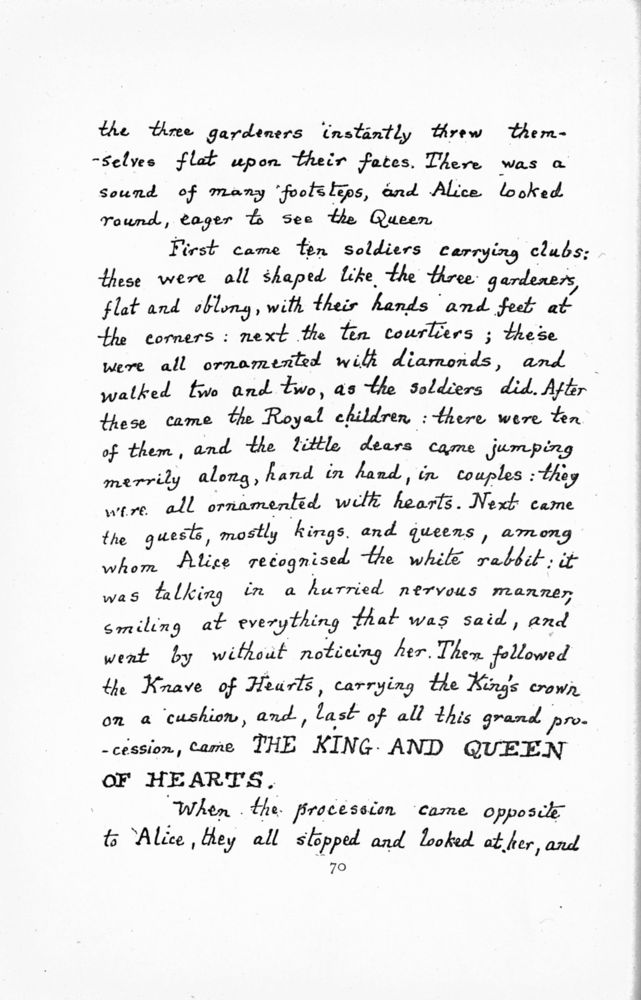 the three gardeners instantly threw them-
-selves flat upon their faces. There was a
sound of many footsteps, and Alice looked
round, eager to see the Queen
First came ten soldiers carrying clubs:
these were all shaped like the three gardeners,
flat and oblong, with their hands and feet at
the corners: next the ten courtiers; these
were all ornamented with diamonds, and
walked two and two, as the soldiers did. After
these came the Royal children: there were ten
of them, and the little dears came jumping
merrily along, hand in hand, in couples: they
were all ornamented with hearts. Next came
the guests, mostly kings and queens, among
whom Alice recognised the white rabbit: it
was talking in a hurried nervous manner,
smiling at everything that was said, and
went by without noticing her. Then followed
the Knave of Hearts, carrying the King's crown
on a cushion, and, last of all this grand pro-
-cession, came THE KING AND QUEEN
OF HEARTS.
When the procession came opposite
to Alice, they all stopped and looked at her, and
70